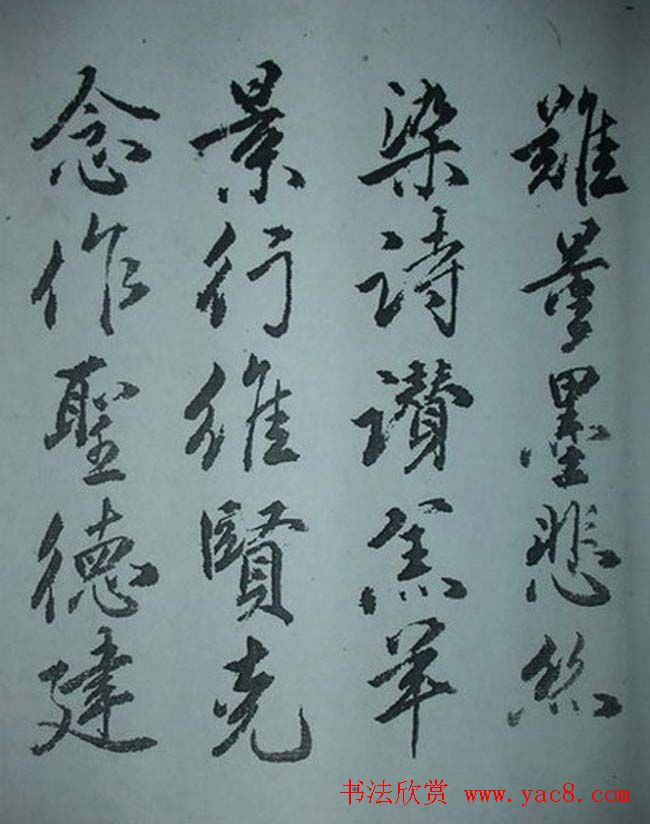 難量墨悲絲
染詩讚羔羊
景行維賢克
念作聖德建
书法欣赏 www.yac8.com